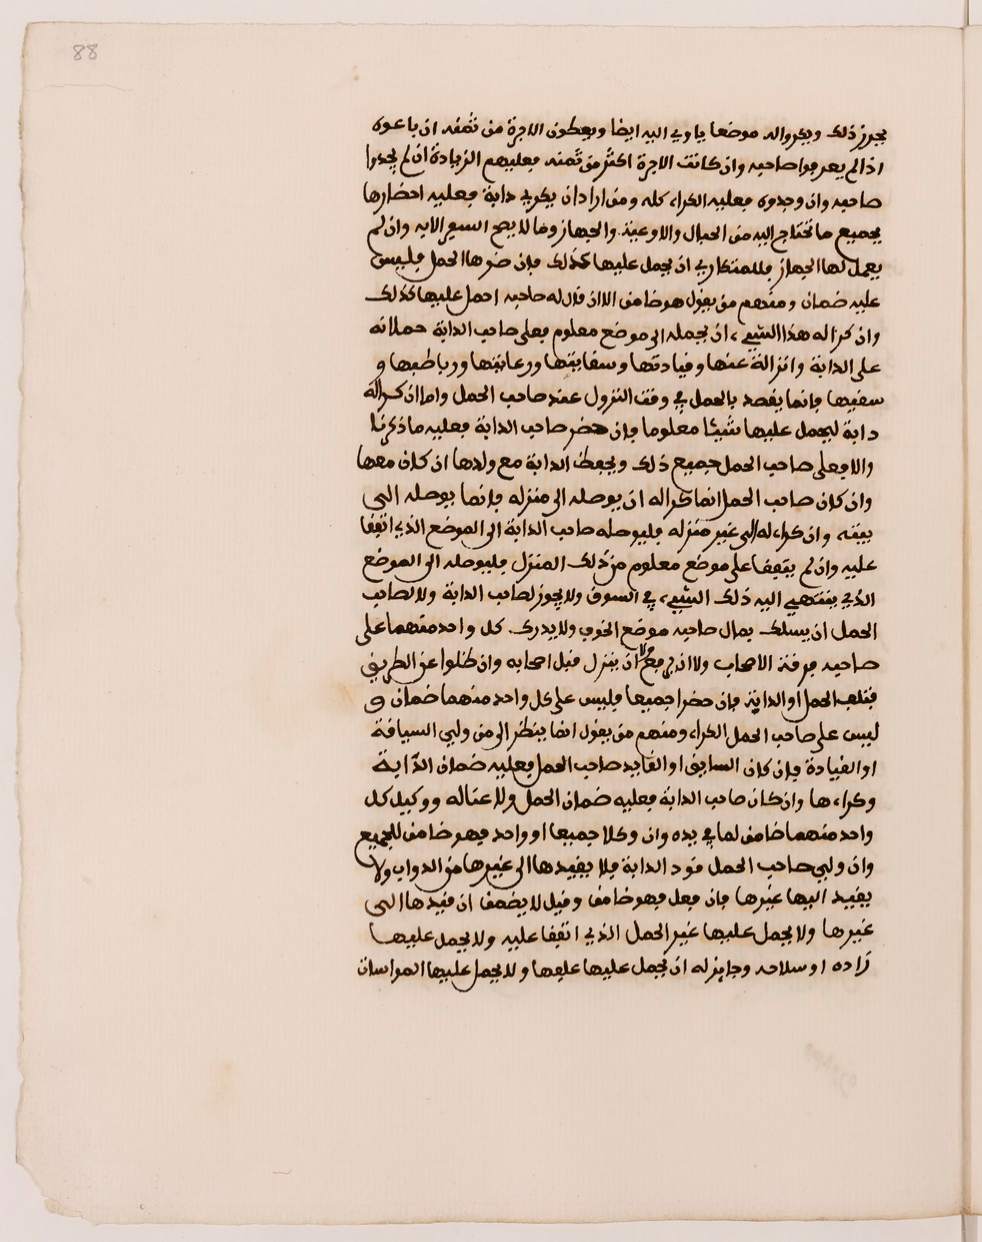 88
يجوز ذلك ويكروا له موضعا ياوي اليه ايضا ويعطون الاجرة من ثمنه ان باعوه
اذا لم يعرفوا صاحبه وان كانت الاجرة اكثر من ثمنه فعليهم الزيادة ان لم يجدوا
صاحبه وان وجدوه فعليه الكراء كله ومن اراد ان يكري دابة فعليه احضارها
بجميع ما تحتاج اليه من الحبال والاوعية والجهاز وما لا يصح السير الا به وان لم
يعمل لها الجهاز فللمتكاري ان يحمل عليها كذلك فان ضرها الحمل فليس
عليه ضمان ومنهم من يقول هو ضامن الا ان قال له صاحبه احمل عليها كذلك
وان كرا له هذا الشيء ان يحمله الى موضع معلوم فعلى صاحب الدابة حملانه
على الدابة وانزاله عنها وقيادتها وسقايتها ورعايتها ورباطها و
سقيها فانما يقصد بالحمل في وقت النزول عند صاحب الحمل واما ان كرا له
دابة ليحمل عليها شيئا معلوما فان حضر صاحب الدابة فعليه ما ذكرنا
والا فعلى صاحب الحمل جميع ذلك ويحفظ الدابة مع ولدها ان كان معها
وان كان صاحب الحمل انما كرا له ان يوصله الى منزله فانما يوصله الى
بيته وان كراء له الى غير منزله فليوصله صاحب الدابة الى الموضع الذي اتفقا
عليه وان لم يتفقا على موضع معلوم من ذلك المنزل فليوصله الى الموضع
الذي ينتهي اليه ذلك الشيء في السوق ولا يجوز لصاحب الدابة ولا لصاحب
الحمل ان يسلك بمال صاحبه موضع الخوف ولا يدرك كل واحد منهما على
صاحبه فرقة الاصحاب ولا ان ان ينزل قبل اصحابه وان ضلوا عن الطريق
فتلف الحمل او الدابة فان حضرا جميعا فليس على كل واحد منهما ضمان و
ليس على صاحب الحمل الكراء ومنهم من يقول انما ينظر الى من ولي السياقة
او القيادة فان كان السايق او القايد صاحب الحمل فعليه ضمان الدابة
وكراءها وان كان صاحب الدابة فعليه ضمان الحمل ولا عناله ووكيل كل
واحد منهما ضامن لما في يده وان وكلا جميعا او واحد فهو ضامن للجميع
وان ولي صاحب الحمل قود الدابة فلا يقيدها الى غيرها من الدواب ولا
يقيد اليها غيرها فان فعل فهو ضامن وقيل لا يضمن ان قيدها الى
غيرها ولا يحمل عليها غير الحمل الذي اتفقا عليه ولا يحمل عليها
زاده او سلاحه وجايز له ان يحمل عليها علفها ولا يحمل عليها